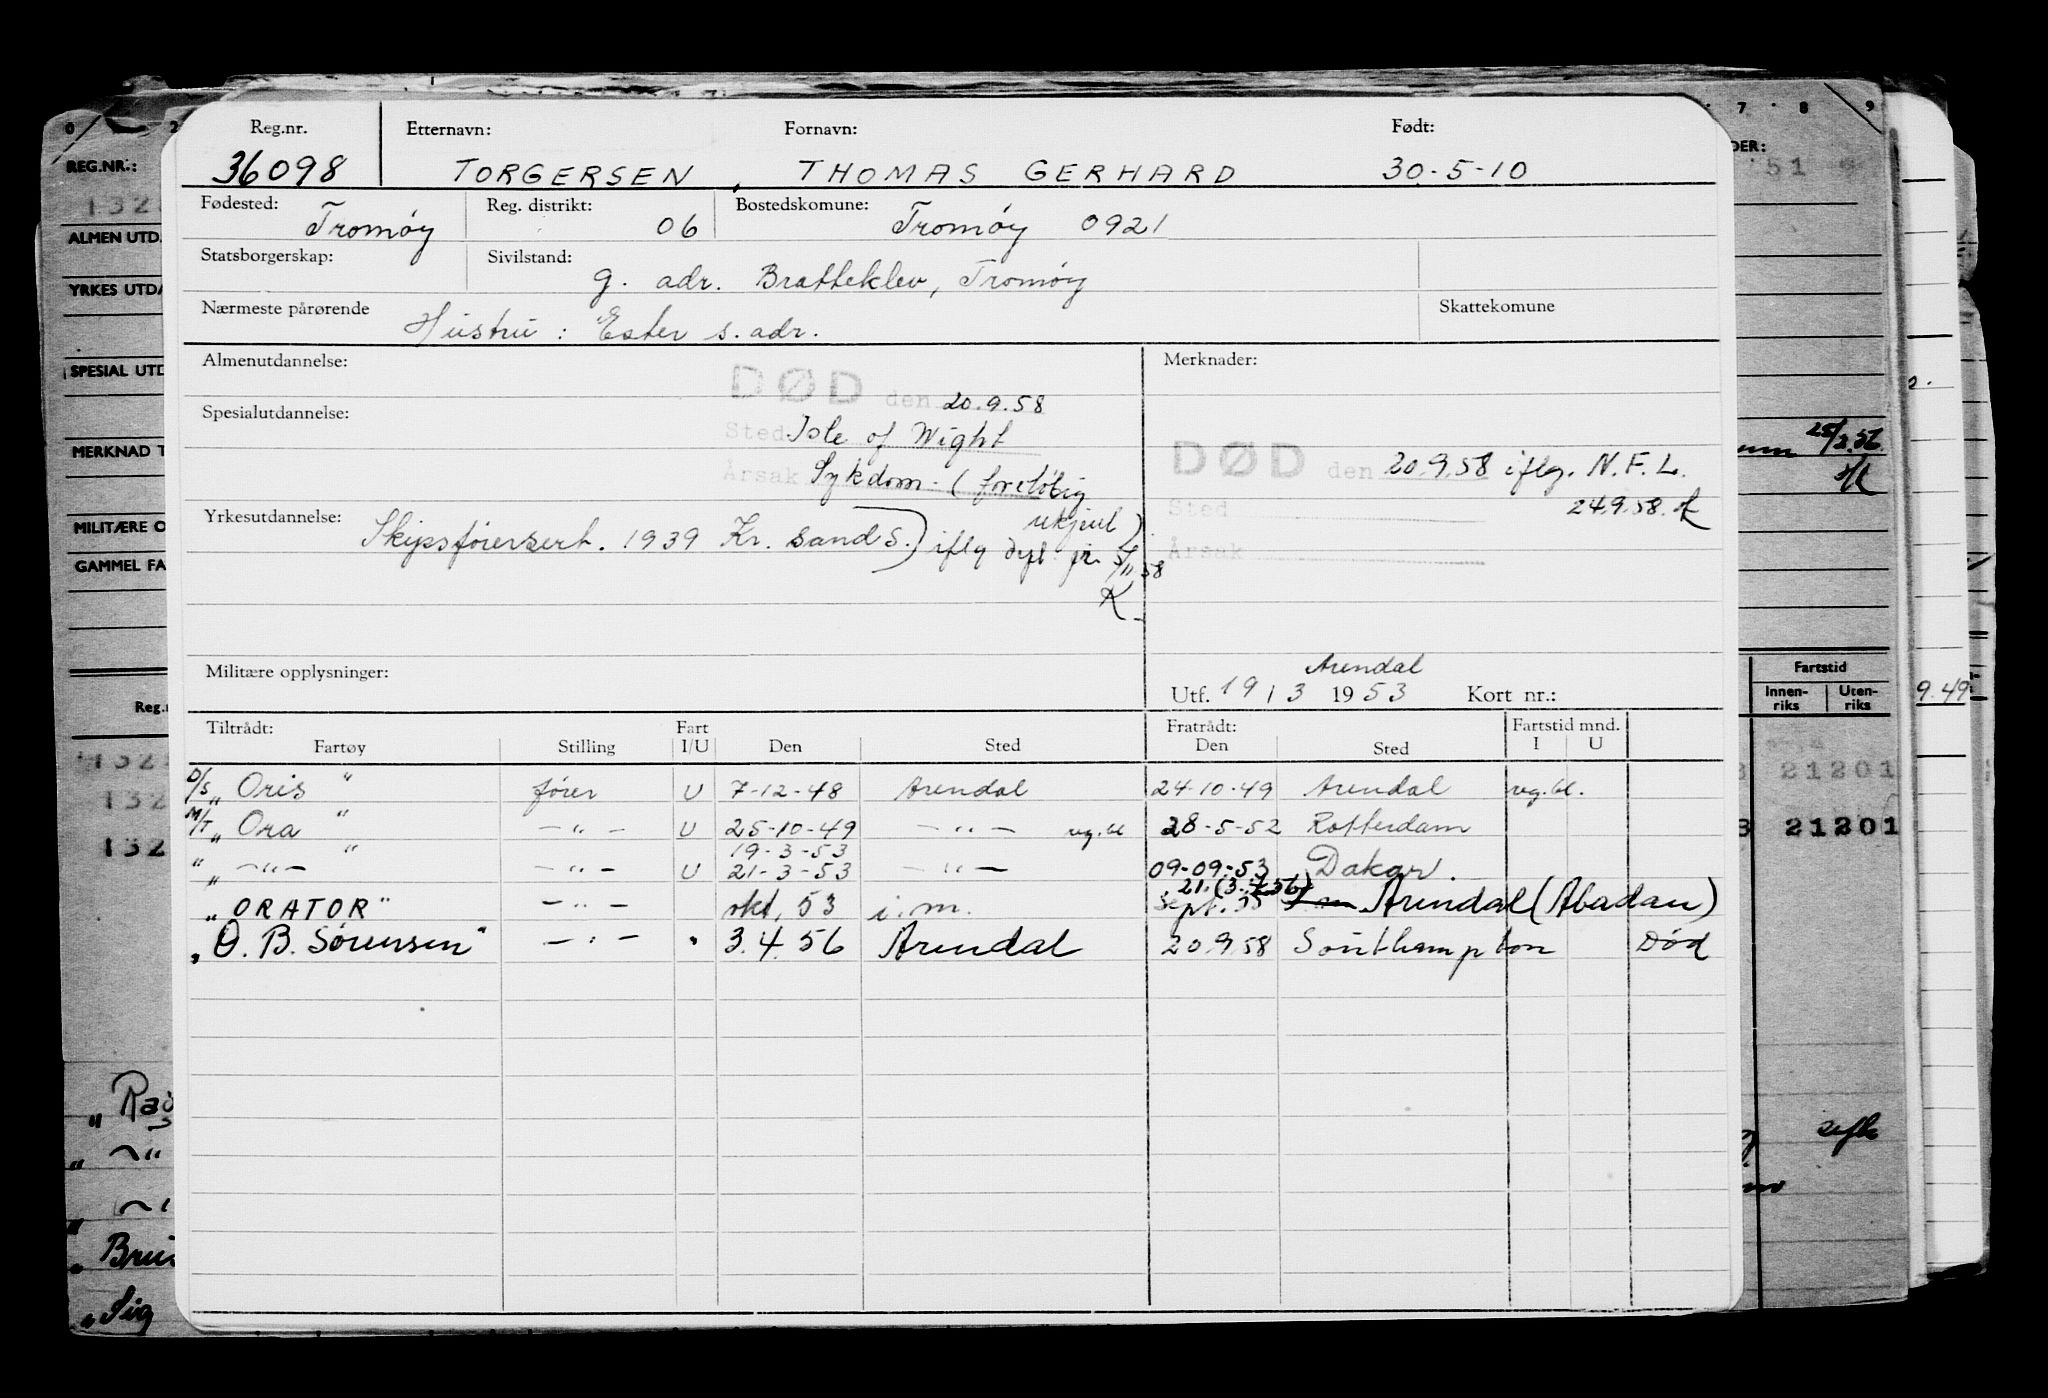 Reg.nr. Etternavn: Fornavn: Født:
36098 TORGERSEN, THOMAS GERHARD 30-5-10
Fødested: Reg. distrikt: Bostedskomune:
Tromøy 06 Tromøy 0921
Statsborgerskap: Sivilstand:
g. adr. Bratteklev, Tromøy
Nærmeste pårørende Skattekomune
Hustru: Ester s. adr.
Almenutdannelse: Merknader:
DØD den 20.9.58
Spesialutdannelse: Sted Isle of Wight
DØD den 20.9.58 iflg. N.F.L.
Årsak Sykdom - (foreløbig
Sted 24.9.58.
Yrkesutdannelse: ukjent)
Skipsførersert. 1939 Kr. sand S.) iflg dpl. pr. 5/11 58
Årsak
K
Militære opplysninger: Arendal
Utf. 19/3 1953 Kort nr.:
Tiltrådt: Fart Fratrådt: Fartstid mnd.
Fartøy Stilling I/U Den Sted Den Sted I U
D/S "Oris" fører U 7-12-48 Arendal 24-10-49 Arendal reg.bl.
M/T "Ora" -"- U 25-10-49 -"- reg.bl 28-5-52 Rotterdam
19-3-53
" -"- " -"- U 21-3-53 -"- 09-09-53 Dakar.
"ORATOR" -"- okt, 53 i.m. sept. 55 Arendal (Abadan)
"O. B. Sørensen" -"- " 3.4.56 Arendal 20.9.58 Southampton Død
REG.NR.:
132
ALMEN UTD
YRKES UTDA
SPESIAL UTD
MERKNAD T
MILITÆRE O
GAMMEL FA
Reg.
132
132
132
" -"
Sig
7 8 9
DER:
51 9
25/2.56
Fartstid
Innen-riks Uten-riks
9.49
21201
21201